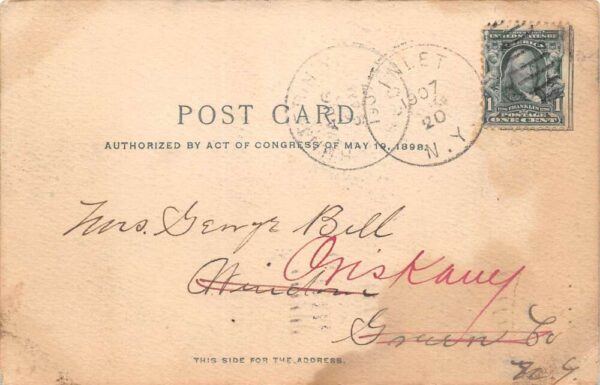 HOWLET
1907
20
N.Y.
SERIES 1902
UNITED STATES OF AMERICA
1 FRANKLIN 1
POSTAGE
ONE CENT
POST CARD
AUTHORIZED BY ACT OF CONGRESS OF MAY 19, 1898.
Mrs. George Bell
Oriskany
Green Co
N.Y.
THIS SIDE FOR THE ADDRESS.